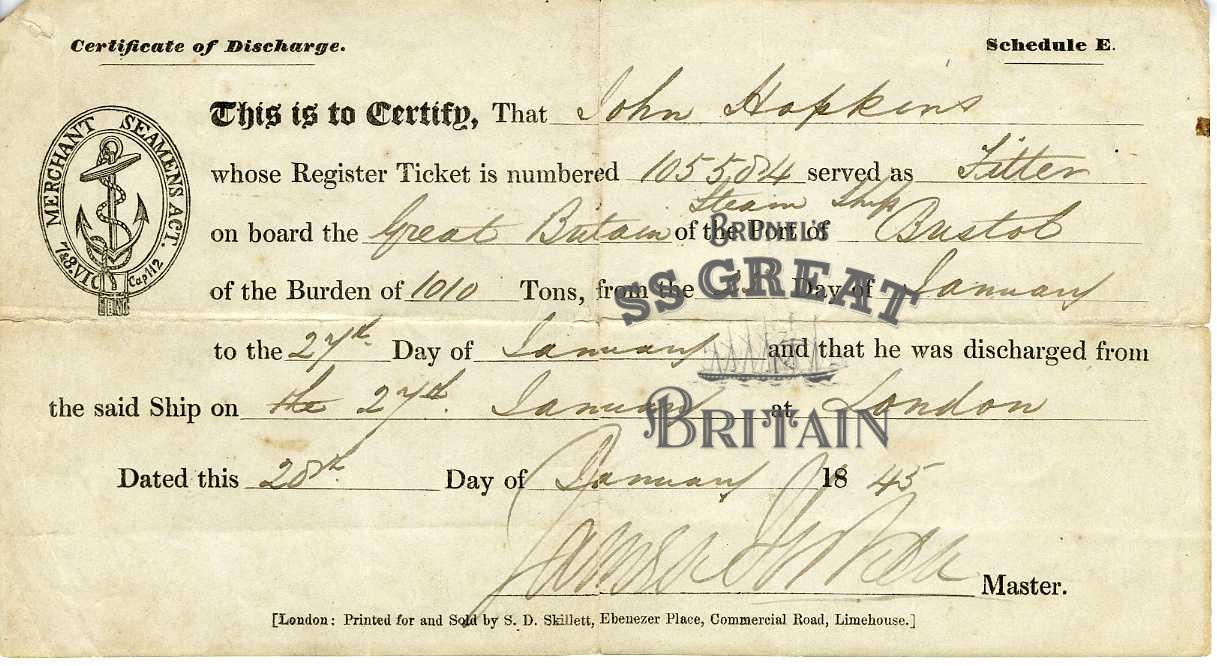 Certificate of Discharge. Schedule E.
This is to Certify, That John Hopkins
whose Register Ticket is numbered 105584 served as Fitter
Steam Ship
on board the Great Britain of the Port of Bristol
of the Burden of 1010 Tons, from the Day of January
to the 27th. Day of January and that he was discharged from
the said Ship on the 27th. January at London
Dated this 28th. Day of January 1845
James Master.
[London: Printed for and Sold by S. D. Skillett, Ebenezer Place, Commercial Road, Limehouse.]
MERCHANT SEAMENS ACT.
7&8. VIC Cap 112
BRUNEL'S
SS GREAT
BRITAIN